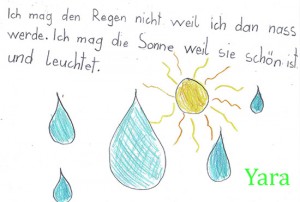 Ich mag den Regen nicht weil ich dan nass
werde. Ich mag die Sonne weil sie schön ist
und leuchtet.
Yara